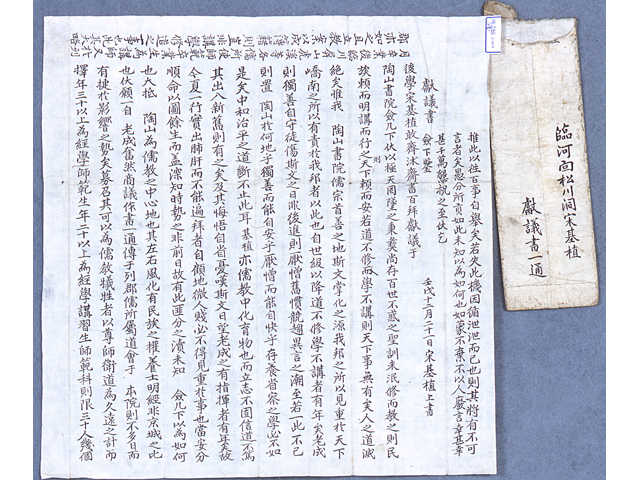 獻議書
後學宋基植敢齋沐齋書百拜獻議于
陶山書院 僉几下伏以極天罔墜之秉彛尚存百世不惑之聖訓未泯修而教之則民
族賴而明講而行之則天下賴而安若道不修而學不講則天下事無有矣人之道滅
絶矣惟我 陶山書院儒宗首善之地斯文掌化之源我邦之所以見重於天下
嶠南之所以有責於我邦者以此也自世級以降道不修學不講者有年矣老成
則獨善自守徒傷斯文之日非後進則厭憎舊慣競趨異言之潮至若一此不已
則置 陶山於何地乎獨善而能自安乎厭憎而能自快乎存養省察之學必不如
是矣中和治平之道斷不止此耳 基植亦儒教中化育物也而立志不固信道不篤
其出入新舊則有之矣及其悔悟自省憂嘆斯文日望老成之有指揮者有年矣故
今夏入行實出肺肝而不能過拜者自顧地微人賤必不得見重於事也當安分
順命以圖餘生而盖深知時勢之非前日故有此匪分之瀆未知 僉几下以為如何
也大抵 陶山為儒教之中心地也其左右風化有民族之權養士明經非京城之比
也伏願一自 老成當爽商議作書一通傳于列郡儒所屬道會于 本院則不多日而
有捷於影響之勢矣募召其可以為儒教犧牲者以尊師衛道為久遠之計而
擇年三十以上為經學師範生年二十以上為經學講習生師範科則限三十人幾個
推此以往百事自擧矣若失此機因循泄泄而已也則其將有不可
言者矣愚分所質如此未知以為如何也如蒙不棄不以人廢言幸甚幸
甚千萬龔視之至伏乞
僉下鑒
壬戌十二月二十日宋基植上書
臨河面松川洞宋基植
獻議書一通